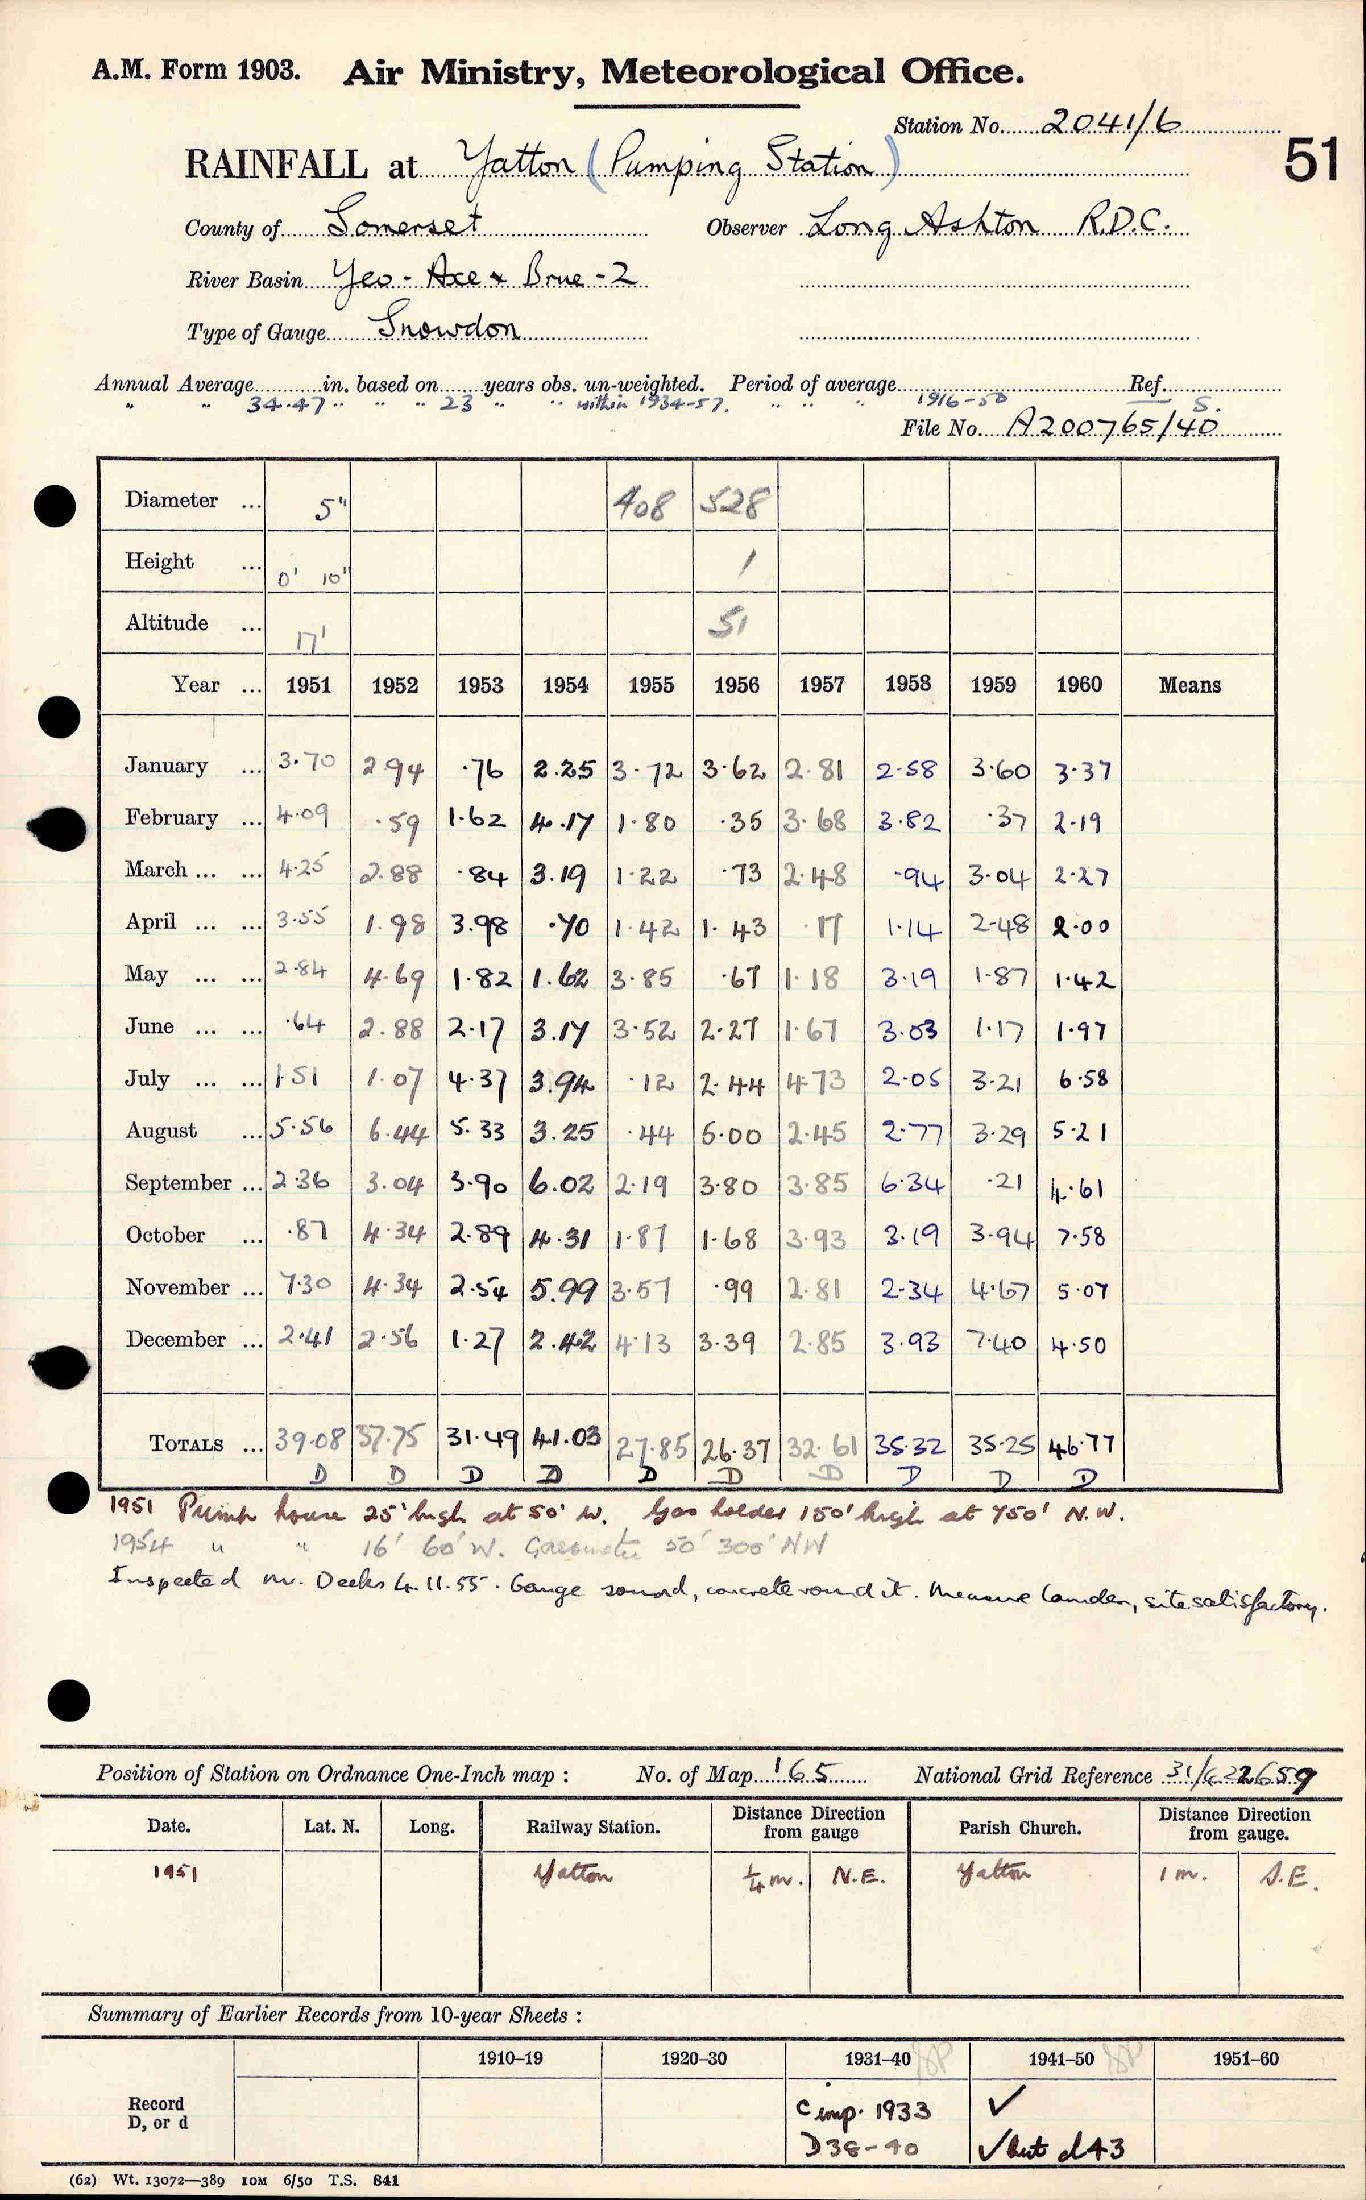 A.M. Form 1903. Air Ministry, Meteorological Office.
Station No. 2041/6
RAINFALL at Yatton (Pumping Station)
51
County of Somerset Observer Long Ashton R.D.C.
River Basin Yeo - Axe & Brue - 2
Type of Gauge Snowdon
Annual Average in. based on years obs. un-weighted. Period of average Ref.
" " 34.47 " " " 23 " " within 1934-57. " " " 1916-50 S.
File No. A200765/40
Diameter ... 5" 408 528
Height ... 0' 10" 1
Altitude ... 17' 51
Year ... 1951 1952 1953 1954 1955 1956 1957 1958 1959 1960 Means
January ... 3.70 2.94 .76 2.25 3.72 3.62 2.81 2.58 3.60 3.37
February ... 4.09 .59 1.62 4.17 1.80 .35 3.68 3.82 .37 2.19
March ... ... 4.25 2.88 .84 3.19 1.22 .73 2.48 .94 3.04 2.27
April ... ... 3.55 1.98 3.98 .70 1.42 1.43 .17 1.14 2.48 2.00
May ... ... 2.84 4.69 1.82 1.62 3.85 .67 1.18 3.19 1.87 1.42
June ... ... .64 2.88 2.17 3.17 3.52 2.27 1.67 3.03 1.17 1.97
July ... ... 1.51 1.07 4.37 3.94 .12 2.44 4.73 2.05 3.21 6.58
August ... 5.56 6.44 5.33 3.25 .44 5.00 2.45 2.77 3.29 5.21
September ... 2.36 3.04 3.90 6.02 2.19 3.80 3.85 6.34 .21 4.61
October ... .87 4.34 2.89 4.31 1.87 1.68 3.93 3.19 3.94 7.58
November ... 7.30 4.34 2.54 5.99 3.57 .99 2.81 2.34 4.67 5.07
December ... 2.41 2.56 1.27 2.42 4.13 3.39 2.85 3.93 7.40 4.50
TOTALS ... 39.08 37.75 31.49 41.03 27.85 26.37 32.61 35.32 35.25 46.77
D D D D D D D D D D
1951 Pump house 25' high at 50' W. Gas holder 150' high at 750' N.W.
1954 " " 16' 60' W. Gasometer 50' 300' NW
Inspected Mr. Deeks 4.11.55. Gauge sound, concrete round it. Measure Camden, site satisfactory.
Position of Station on Ordnance One-Inch map : No. of Map 165 National Grid Reference 31/422659
Date. Lat. N. Long. Railway Station. Distance Direction from gauge Parish Church. Distance Direction from gauge.
1951 Yatton 1/4 m. N.E. Yatton 1 m. S.E.
Summary of Earlier Records from 10-year Sheets :
1910–19 1920–30 1931–40 1941–50 1951–60
Record D, or d
C imp. 1933 ✓
D 38-40 ✓ but d43
(62) Wt. 13072—389 10M 6/50 T.S. 841